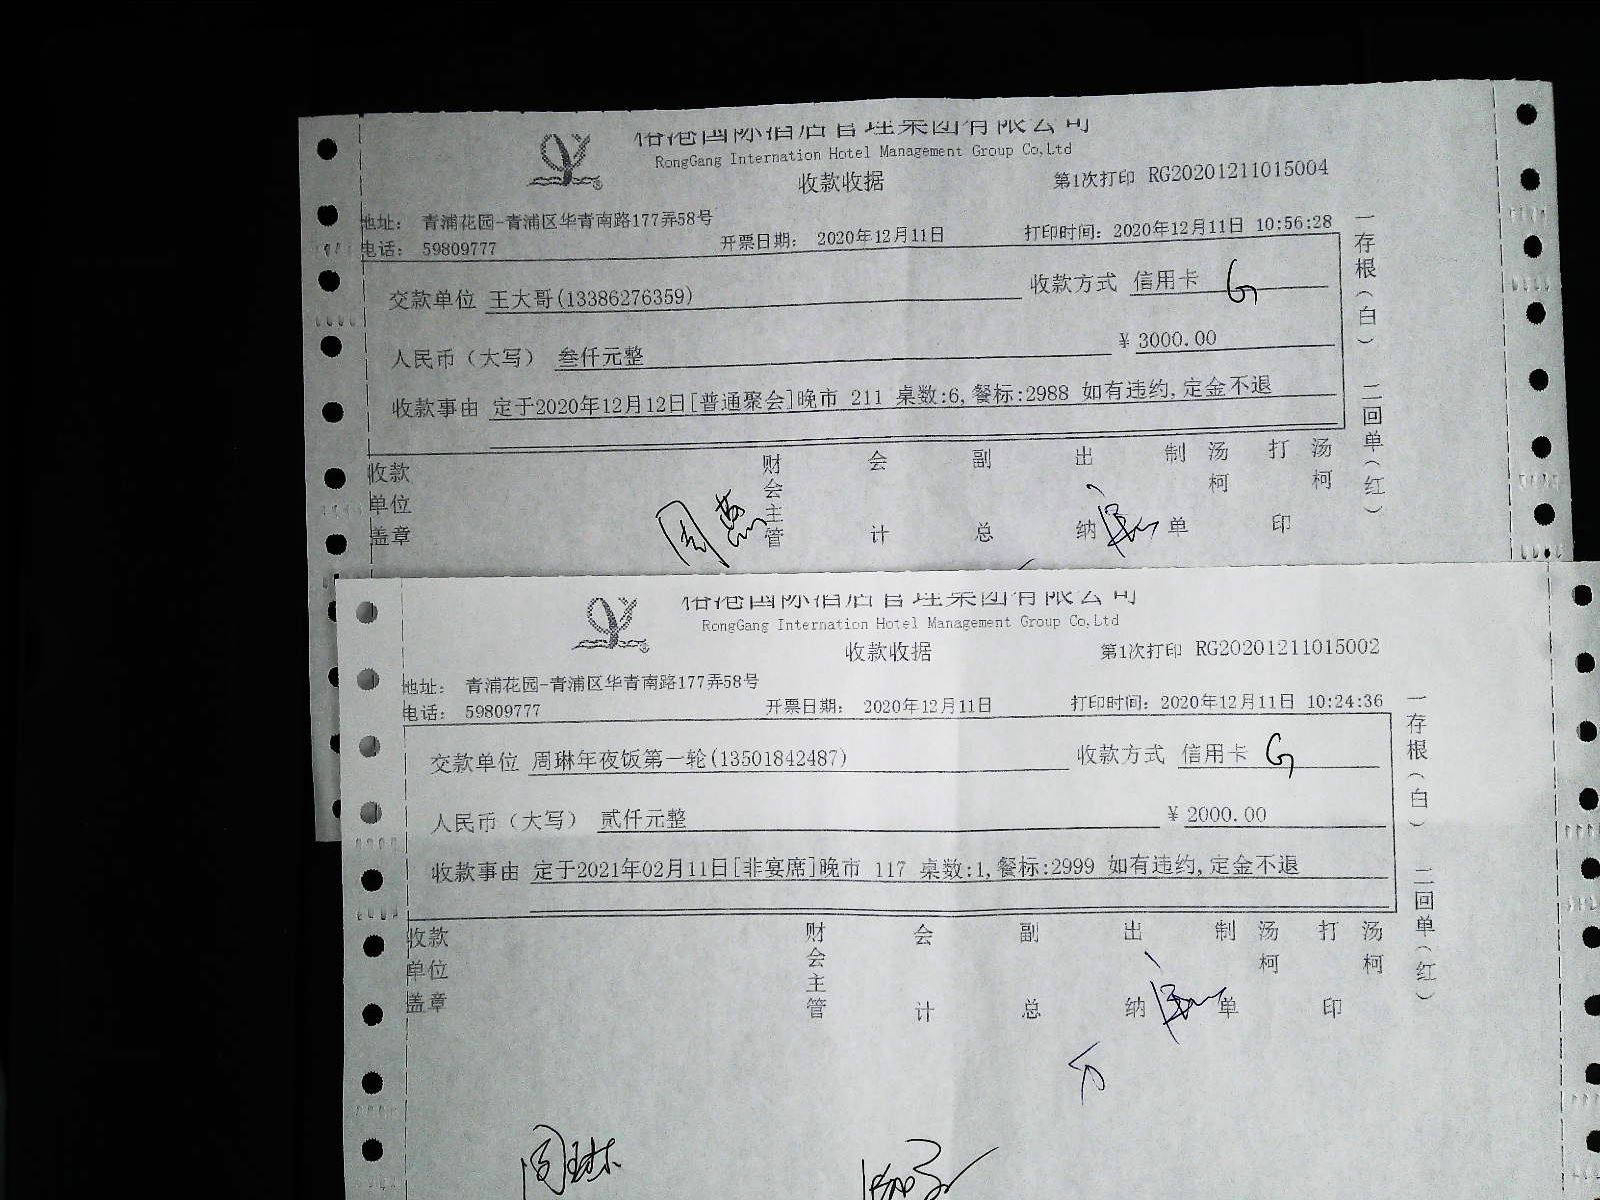 国际酒店管理集团有限公司
RongGang Internation Hotel Management Group Co,Ltd
收款收据
第1次打印 RG20201211015004
地址： 青浦花园-青浦区华青南路177弄58号
电话： 59809777
开票日期： 2020年12月11日
打印时间：2020年12月11日 10:56:28
交款单位 王大哥(13386276359)
收款方式 信用卡 G
人民币（大写） 叁仟元整
￥ 3000.00
收款事由 定于2020年12月12日[普通聚会]晚市 211 桌数:6,餐标:2988 如有违约,定金不退
一存根（白） 二回单（红）
收款单位盖章
财会主管 会计 副总 出纳 制单 汤柯 打印 汤柯
国际酒店管理集团有限公司
RongGang Internation Hotel Management Group Co,Ltd
收款收据
第1次打印 RG20201211015002
地址： 青浦花园-青浦区华青南路177弄58号
电话： 59809777
开票日期： 2020年12月11日
打印时间：2020年12月11日 10:24:36
交款单位 周琳年夜饭第一轮(13501842487)
收款方式 信用卡 G
人民币（大写） 贰仟元整
￥ 2000.00
收款事由 定于2021年02月11日[非宴席]晚市 117 桌数:1,餐标:2999 如有违约,定金不退
一存根（白） 二回单（红）
收款单位盖章
财会主管 会计 副总 出纳 制单 汤柯 打印 汤柯
周琳